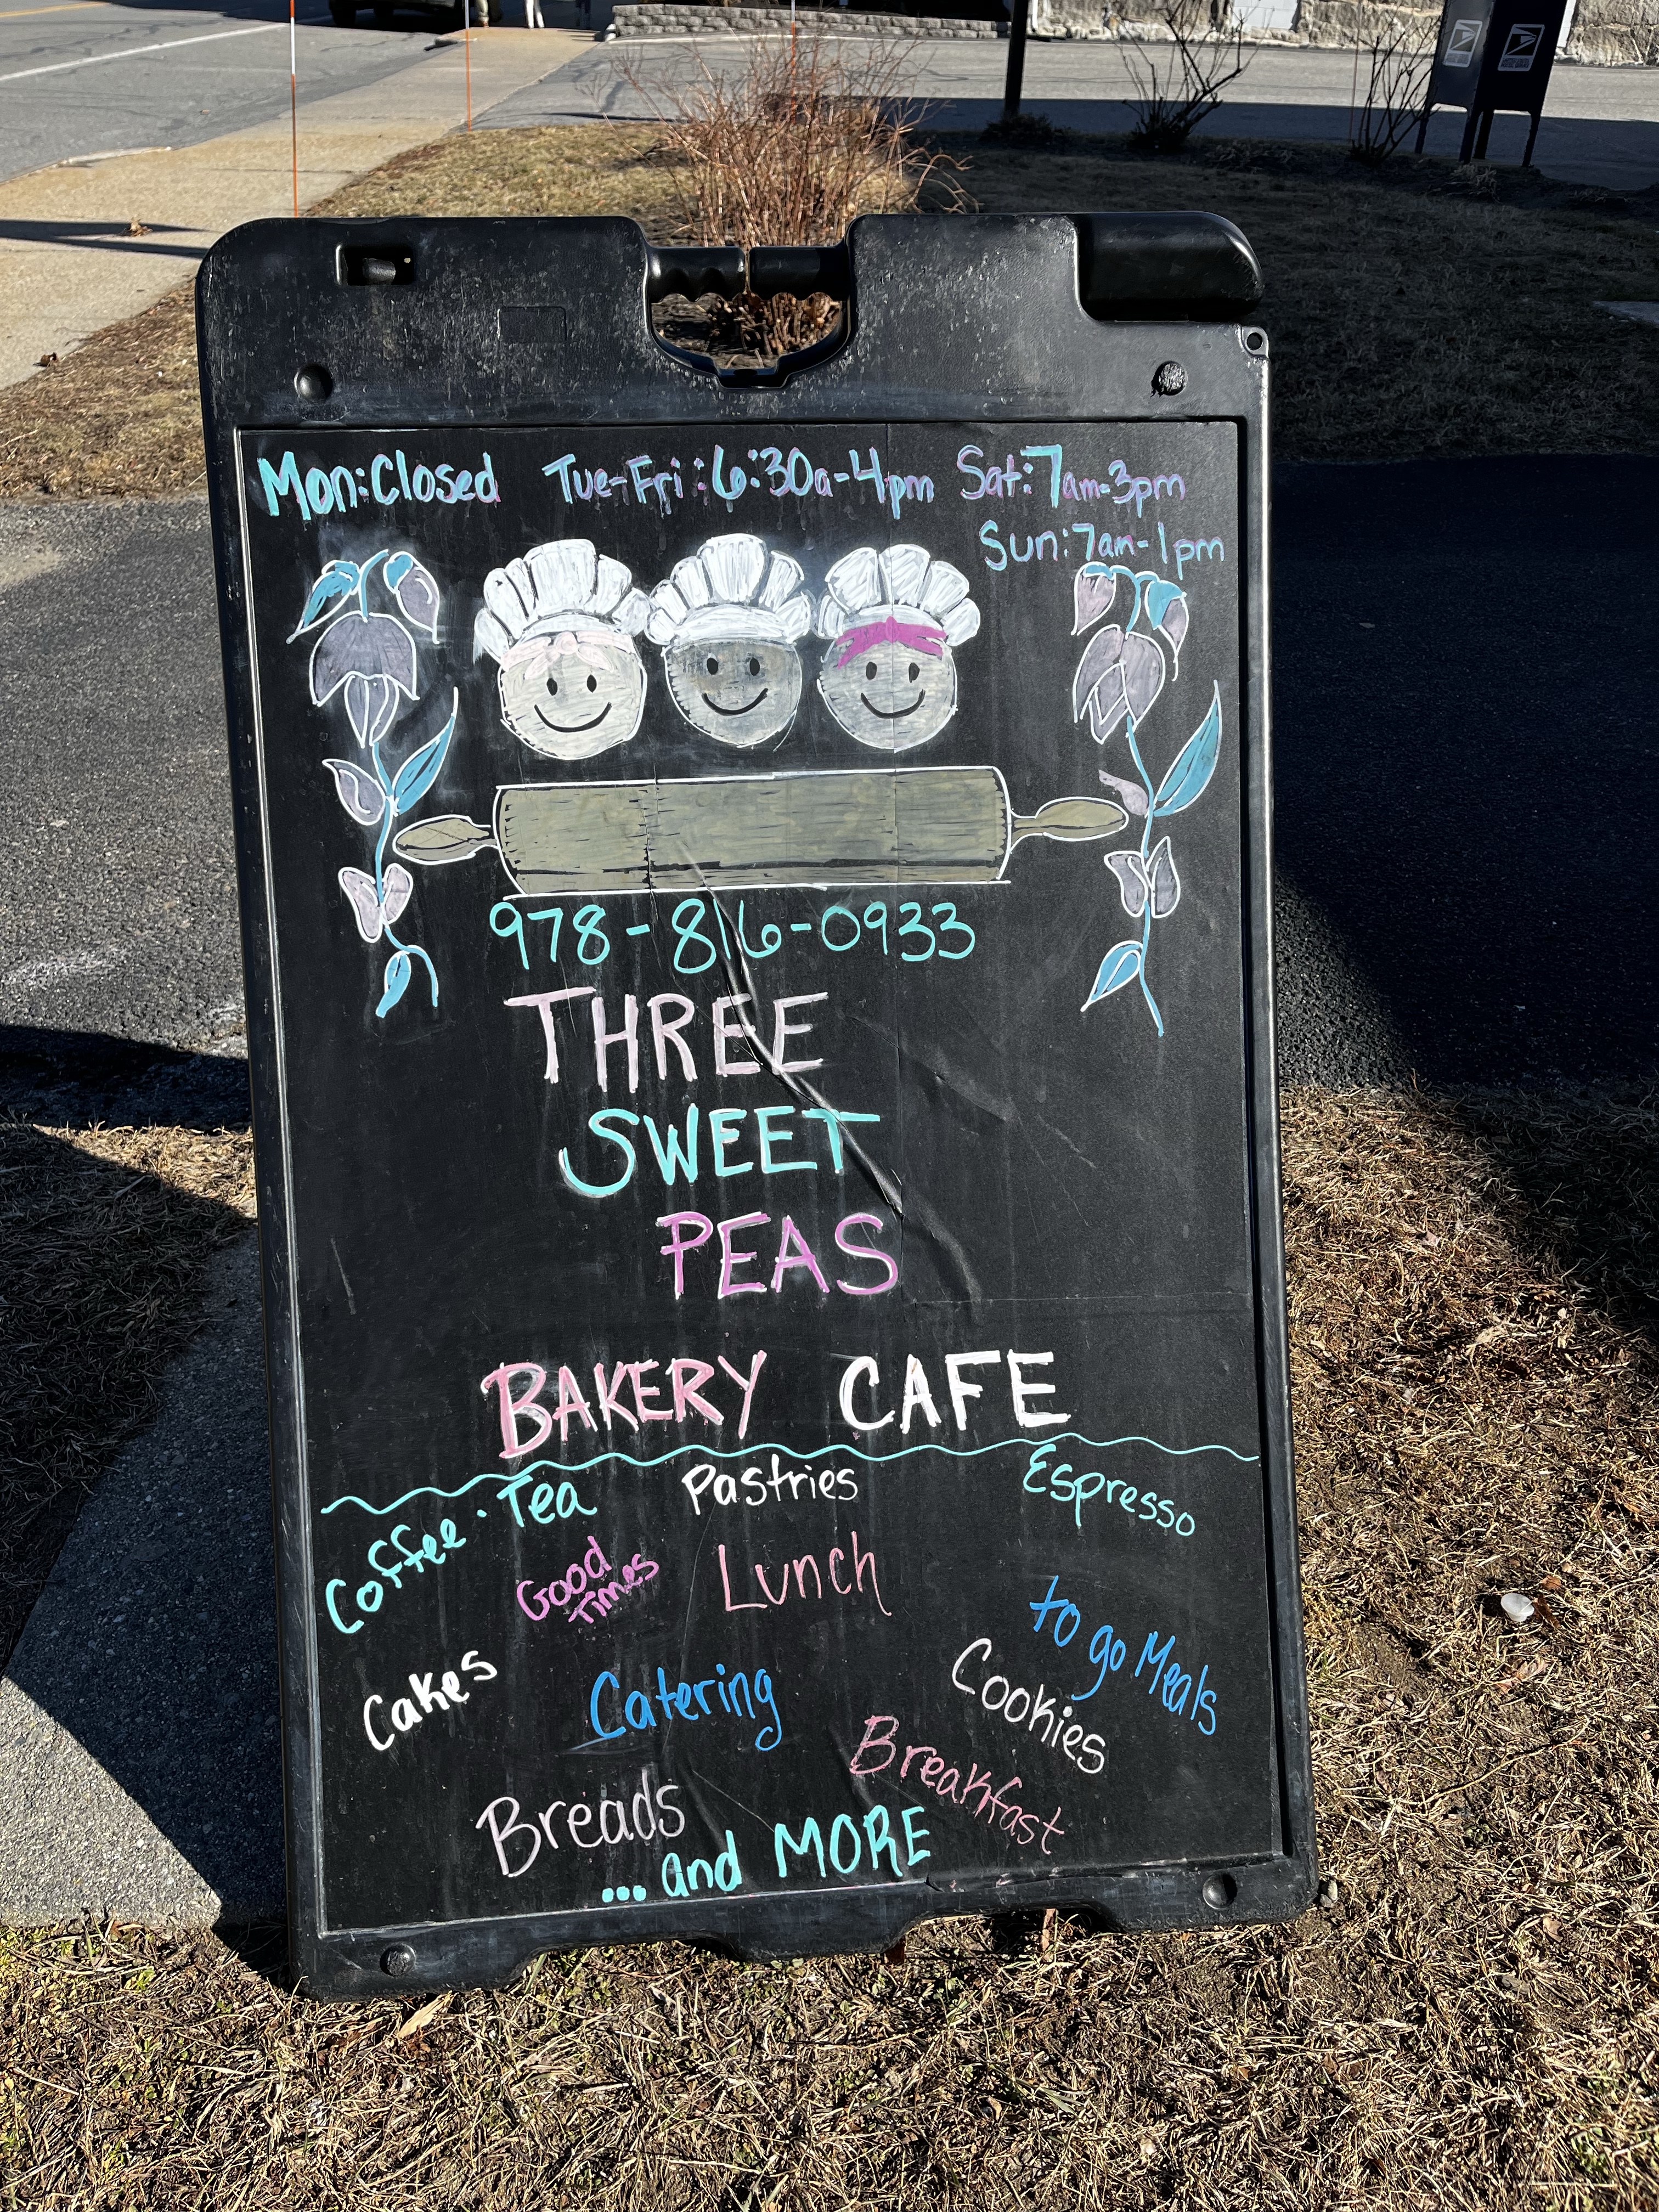 Mon:Closed Tue-Fri:6:30a-4pm Sat:7am-3pm
Sun:7am-1pm
978-816-0933
THREE
SWEET
PEAS
BAKERY CAFE
Coffee · Tea
Pastries
Espresso
Good
Times
Lunch
to go Meals
Cakes
Catering
Cookies
Breakfast
Breads
... and MORE